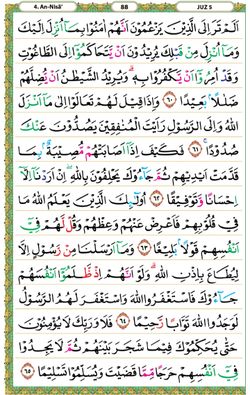 4. An-Nisā' 88 JUZ 5
اَلَمْ تَرَ اِلَى الَّذِيْنَ يَزْعُمُوْنَ اَنَّهُمْ اٰمَنُوْا بِمَآ اُنْزِلَ اِلَيْكَ
وَمَآ اُنْزِلَ مِنْ قَبْلِكَ يُرِيْدُوْنَ اَنْ يَّتَحَاكَمُوْٓا اِلَى الطَّاغُوْتِ
وَقَدْ اُمِرُوْٓا اَنْ يَّكْفُرُوْا بِهٖ ۗ وَيُرِيْدُ الشَّيْطٰنُ اَنْ يُّضِلَّهُمْ
ضَلٰلًا ۢ بَعِيْدًا ٦٠ وَاِذَا قِيْلَ لَهُمْ تَعَالَوْا اِلٰى مَآ اَنْزَلَ
اللّٰهُ وَاِلَى الرَّسُوْلِ رَاَيْتَ الْمُنٰفِقِيْنَ يَصُدُّوْنَ عَنْكَ
صُدُوْدًا ۚ ٦١ فَكَيْفَ اِذَآ اَصَابَتْهُمْ مُّصِيْبَةٌ ۢ بِمَا
قَدَّمَتْ اَيْدِيْهِمْ ثُمَّ جَاۤءُوْكَ يَحْلِفُوْنَ بِاللّٰهِ ۖ اِنْ اَرَدْنَآ اِلَّآ
اِحْسَانًا وَّتَوْفِيْقًا ٦٢ اُولٰۤىِٕكَ الَّذِيْنَ يَعْلَمُ اللّٰهُ مَا
فِيْ قُلُوْبِهِمْ فَاَعْرِضْ عَنْهُمْ وَعِظْهُمْ وَقُلْ لَّهُمْ فِيْٓ
اَنْفُسِهِمْ قَوْلًا ۢ بَلِيْغًا ٦٣ وَمَآ اَرْسَلْنَا مِنْ رَّسُوْلٍ اِلَّا
لِيُطَاعَ بِاِذْنِ اللّٰهِ ۗ وَلَوْ اَنَّهُمْ اِذْ ظَّلَمُوْٓا اَنْفُسَهُمْ
جَاۤءُوْكَ فَاسْتَغْفَرُوا اللّٰهَ وَاسْتَغْفَرَ لَهُمُ الرَّسُوْلُ
لَوَجَدُوا اللّٰهَ تَوَّابًا رَّحِيْمًا ٦٤ فَلَا وَرَبِّكَ لَا يُؤْمِنُوْنَ
حَتّٰى يُحَكِّمُوْكَ فِيْمَا شَجَرَ بَيْنَهُمْ ثُمَّ لَا يَجِدُوْا
فِيْٓ اَنْفُسِهِمْ حَرَجًا مِّمَّا قَضَيْتَ وَيُسَلِّمُوْا تَسْلِيْمًا ٦٥